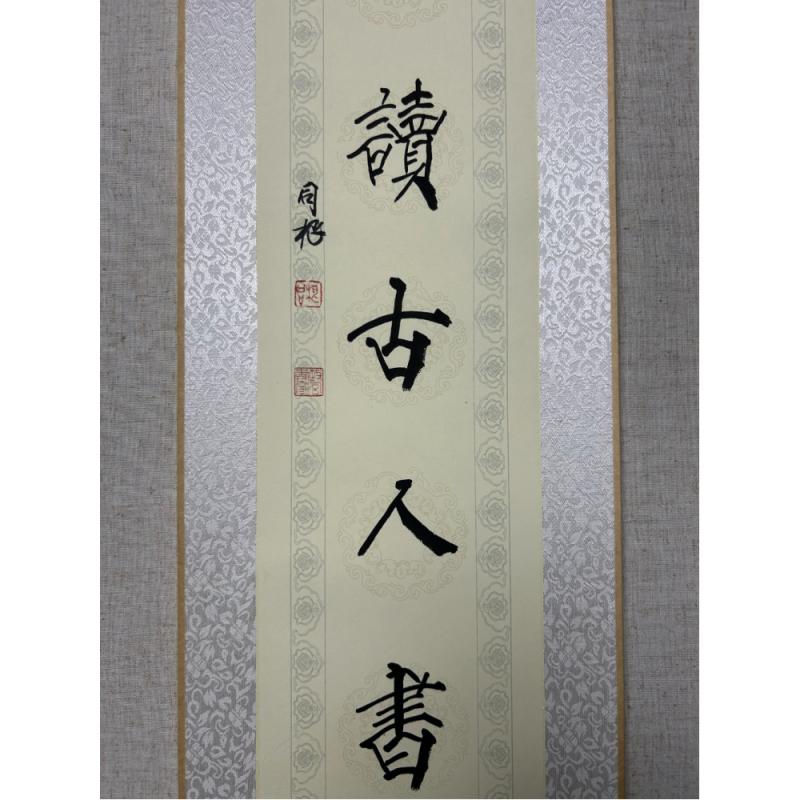 讀古人書
同根